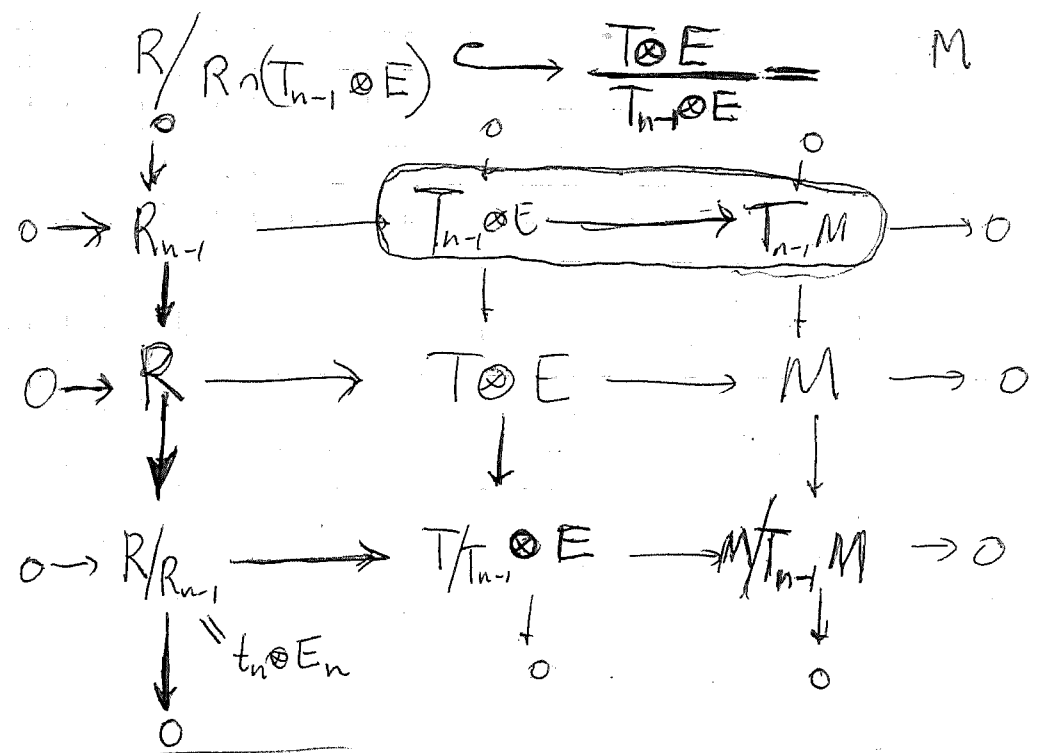 R/R∩(T_{n-1} ⊗ E) ↪ T⊗E / T_{n-1}⊗E = M
0 0 0
↓ ↓ ↓
0 → R_{n-1} → T_{n-1} ⊗ E → T_{n-1} M → 0
↓ ↓ ↓
0 → R → T ⊗ E → M → 0
↓ ↓ ↓
0 → R/R_{n-1} → T/T_{n-1} ⊗ E → M/T_{n-1} M → 0
↓ ∥ t_n ⊗ E_n ↓ ↓
0 0 0